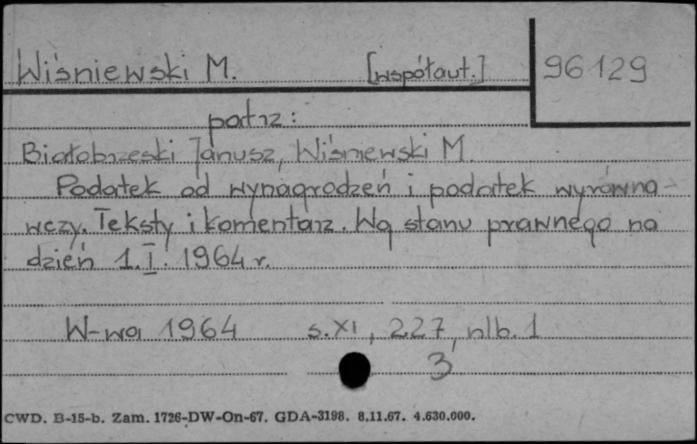 Wiśniewski M. [współaut.] 96129
patrz:
Białobrzeski Janusz, Wiśniewski M.
Podatek od wynagrodzeń i podatek wyrówna-
wczy. Teksty i komentarz. Wg stanu prawnego na
dzień 1.I. 1964 r.
W-wa 1964 s. XI, 227, nlb. 1
3
CWD. B-15-b. Zam. 1726-DW-On-67. GDA-3198. 8.11.67. 4.630.000.